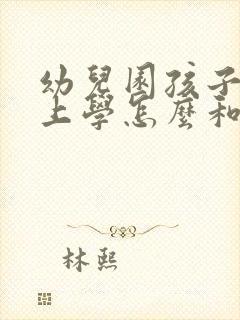 幼兒園孩子
上學怎麼和
林熙